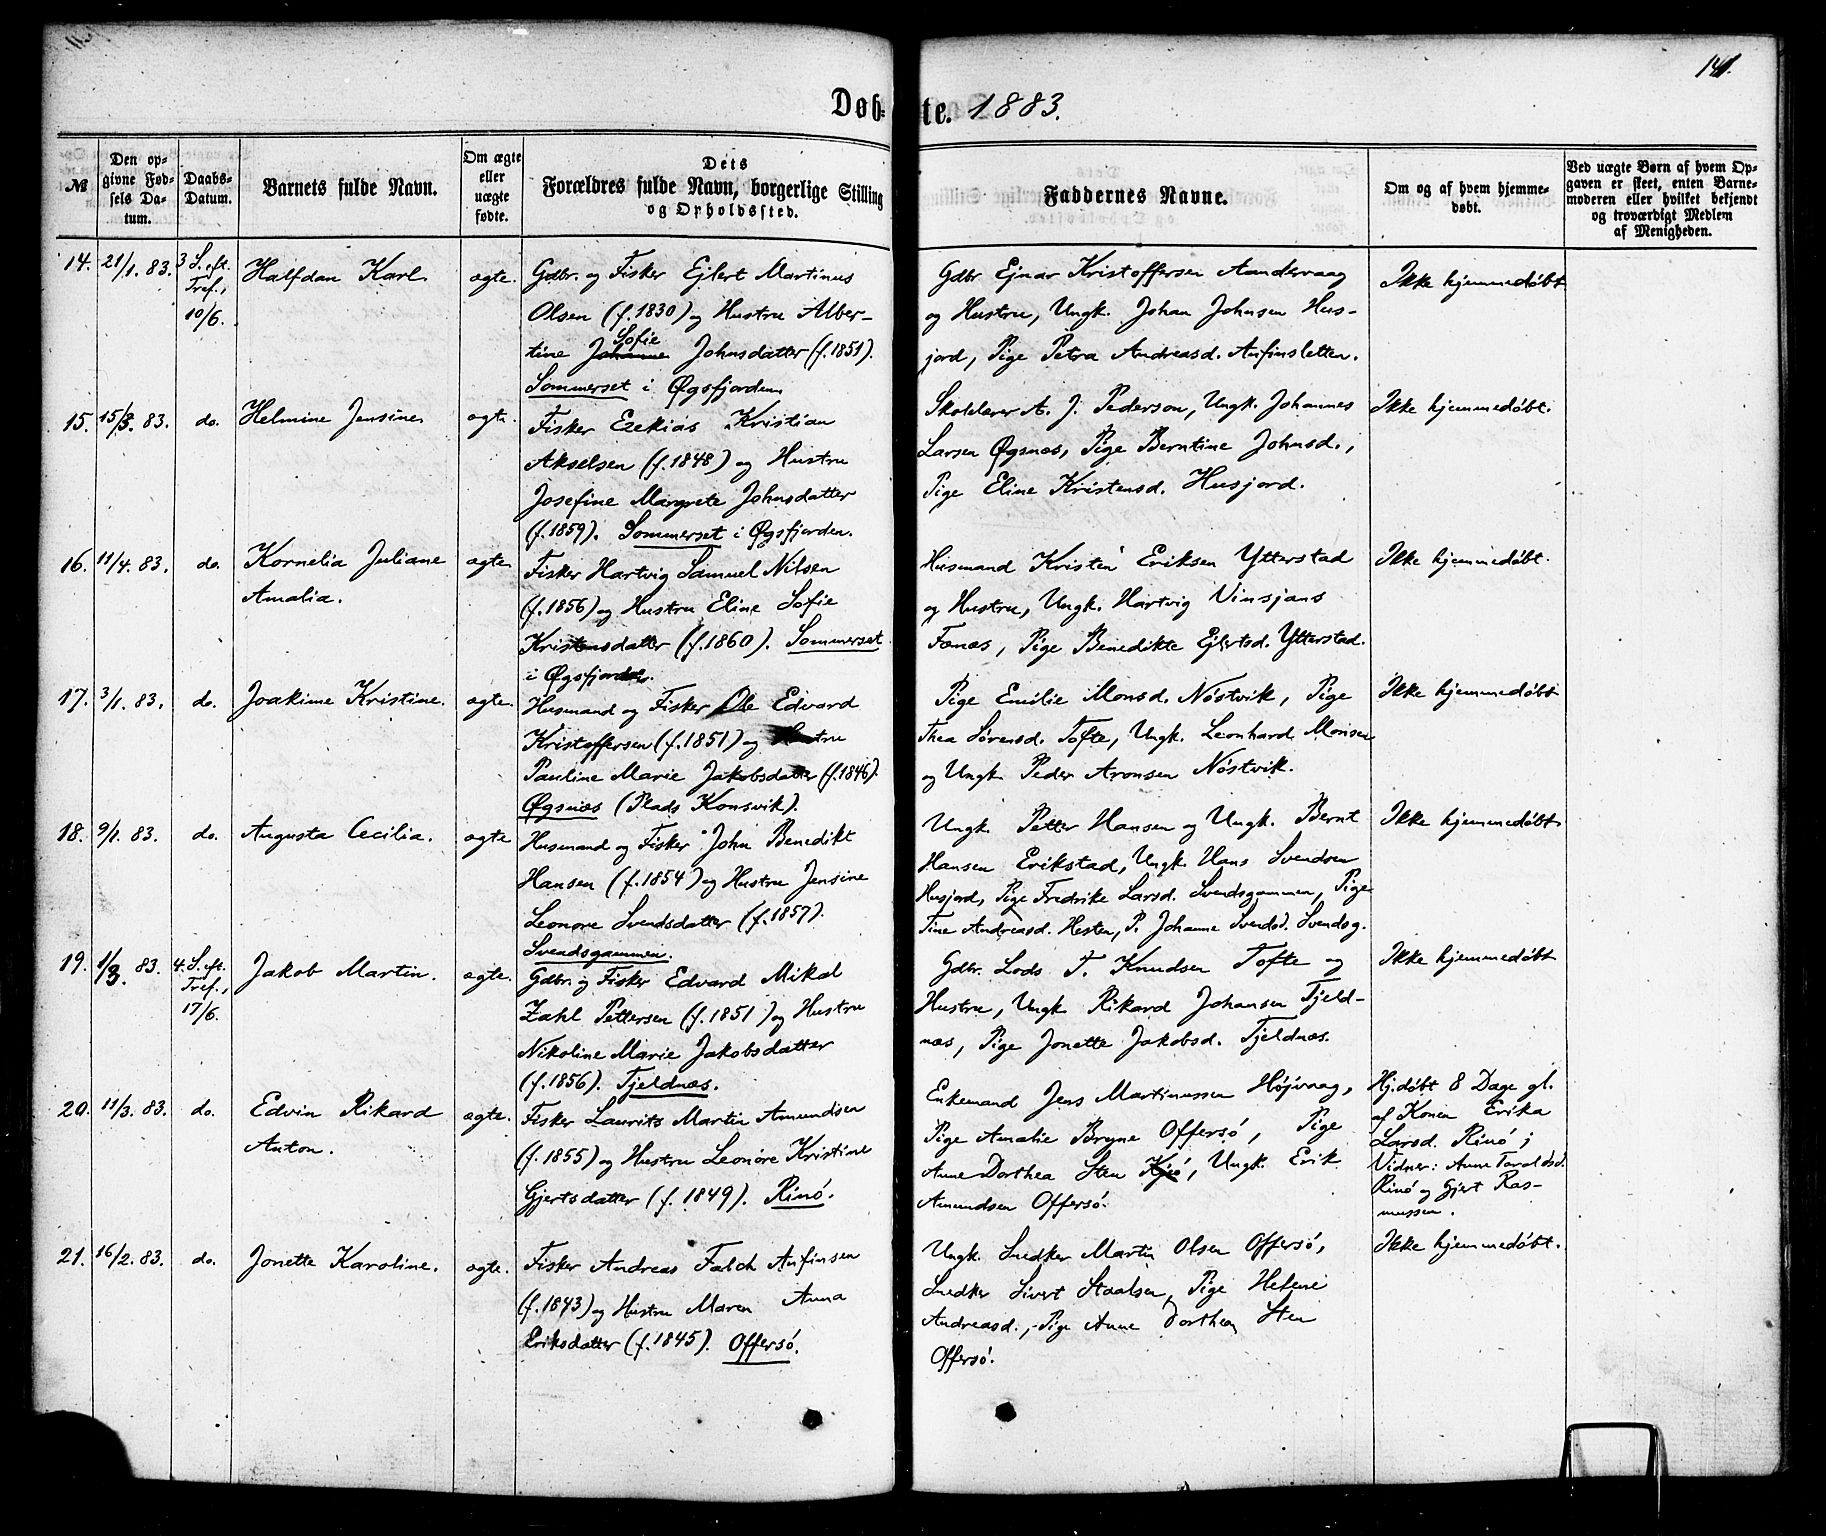 141.
Døbte. 1883.
№
Den opgivne Fødsels Datum.
Daabs-Datum.
Barnets fulde Navn.
Om ægte eller uægte fødte.
Dets Forældres fulde Navn, borgerlige Stilling og Opholdssted.
Faddernes Navne.
Om og af hvem hjemmedøbt.
Ved uægte Børn af hvem Opgaven er skeet, enten Barnemoderen eller hvilket bekjendt og troværdigt Medlem af Menigheden.
14. 21/1. 83. 3 S. eft. Tref., 10/6.
Halfdan Karl
ægte.
Gdbr. og Fisker Ejlert Martinus
Olsen (f. 1830) og Hustru Alber-
tine Johanne Sofie Johnsdatter (f. 1851).
Sommerset i Øgsfjorden
Gdbr Ejnar Kristoffersen Aandervaag
og Hustru, Ungk. Johan Johnsen Hus-
jord, Pige Petra Andreasd. Anfinsletten.
Ikke hjemmedøbt
15. 15/3. 83. do.
Helmine Jensine
ægte.
Fisker Ezekias Kristian
Akselsen (f. 1848) og Hustru
Josefine Margrete Johnsdatter
(f. 1859). Sommerset i Øgsfjorden.
Skolelærer A. J. Pederson, Ungk. Johannes
Larsen Øgsnæs, Pige Berntine Johnsd.,
Pige Eline Kristensd. Husjord.
Ikke hjemmedøbt.
16. 11/4. 83. do.
Kornelia Juliane
Amalia.
ægte.
Fisker Hartvig Samuel Nilsen
(f. 1856) og Hustru Eline Sofie
Kristensdatter (f. 1860). Sommerset
i Øgsfjorden.
Husmand Kristen Eriksen Ytterstad
og Hustru, Ungk. Hartvig Vinsjans
Fænæs, Pige Benedikte Ejlertsd. Ytterstad.
Ikke hjemmedøbt.
17. 3/1. 83. do.
Joakime Kristine.
ægte.
Husmand og Fisker Ole Edvard
Kristoffersen (f. 1851) og Hustru
Pauline Marie Jakobsdatter (f. 1846).
Øgsnæs (Plads Konsvik).
Pige Emilie Monsd. Nóstvik, Pige
Thea Sørensd. Tofte, Ungk. Leonhard Monsen
og Ungk. Peder Aronsen Nóstvik.
Ikke hjemmedøbt
18. 9/1. 83. do.
Augusta Cecilia.
ægte
Husmand og Fisker John Benedikt
Hansen (f. 1854) og Hustru Jensine
Leonore Svendsdatter (f. 1857).
Svendsgammen.
Ungk. Petter Hansen og Ungk. Bernt
Hansen Erikstad, Ungk. Hans Svendsen
Husjord, Pige Fredrike Larsd. Svendsgammen, Pige
Tine Andreasd. Hesten, P. Johanne Svendsd. Svendsg.
Ikke hjemmedøbt
19. 1/3. 83. 4. S. eft. Tref., 17/6.
Jakob Martin.
ægte.
Gdbr. og Fisker Edvard Mikal
Zahl Pettersen (f. 1851) og Hustru
Nikoline Marie Jakobsdatter
(f. 1856). Tjeldnæs.
Gdbr. Lods T. Knudsen Tofte og
Hustru, Ungk Rikard Johansen Tjeld-
næs, Pige Jonette Jakobsd. Tjeldnæs.
Ikke hjemmedøbt
20. 11/3. 83. do.
Edvin Rikard
Anton.
ægte.
Fisker Laurits Martin Amundsen
(f. 1855) og Hustru Leonóre Kristine
Gjertsdatter (f. 1849). Rinó.
Enkemand Jens Martinussen Hójvaag,
Pige Amalie Bryne Offersó, Pige
Anne Dorthea Sten Kjó, Ungk. Erik
Amundsen Offersó.
Hj.døbt 8 Dage gl.
af Konen Erika
Larsd. Rinó;
Vidner: Anne Taraldsd.
Rinó og Gjert Ras-
mussen.
21. 16/2. 83. do.
Jonette Karoline.
ægte.
Fisker Andreas Falch Anfinsen
(f. 1843) og Hustru Maren Anna
Eriksdatter (f. 1845). Offersó.
Ungk. Snedker Martin Olsen Offersó,
Snedker Sivert Staalsen, Pige Helene
Andreasd., Pige Anne Dorthea Sten
Offersó.
Ikke hjemmedøbt.